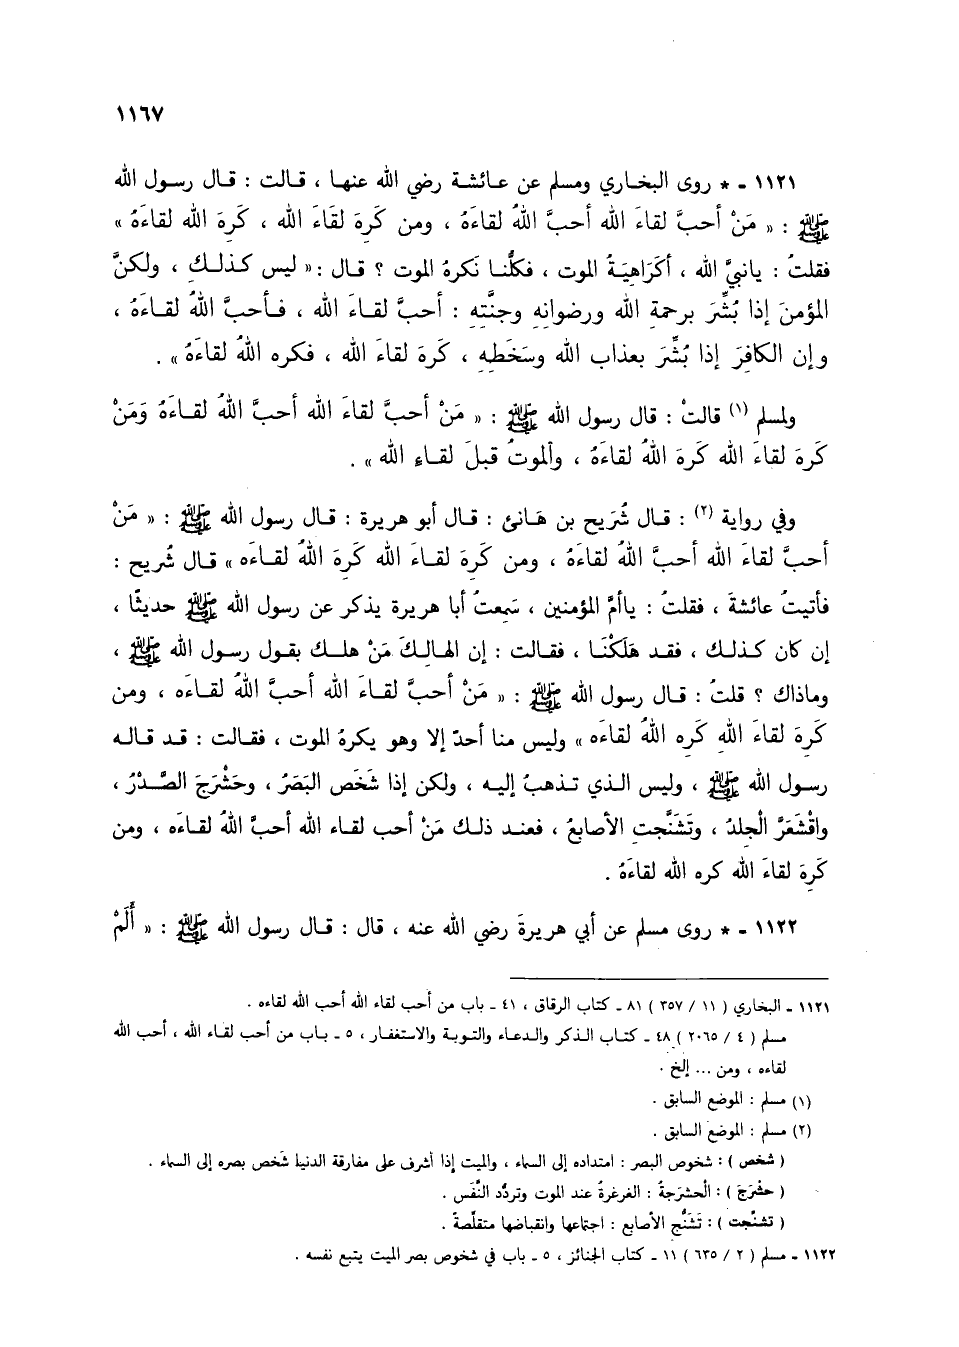 ١١٦٧
١١٢١ - * روى البخاري ومسلم عن عائشة رضي الله عنها ، قالت : قال رسول الله
ﷺ : « مَنْ أحبَّ لقاءَ الله أحبَّ اللهُ لقاءَهُ ، ومن كَرِهَ لقَاءَ الله ، كَرِهَ الله لقاءَهُ »
فقلتُ : يانبيَّ الله ، أكَرَاهِيَةُ الموت ، فكلُّنا نَكرهُ الموت ؟ قال :« ليس كذلكِ ، ولكنَّ
المؤمنَ إذا بُشِّرَ برحمةِ الله ورضوانِهِ وجنَّتِهِ : أحبَّ لقاءَ الله ، فأحبَّ اللهُ لقاءَهُ ،
وإن الكافِرَ إذا بُشِّرَ بعذاب الله وسَخَطِهِ ، كَرِهَ لقاءَ الله ، فكره اللهُ لقاءَهُ » .
ولمسلم (١) قالتْ : قال رسول الله ﷺ : « مَنْ أحبَّ لقاءَ الله أحبَّ اللهُ لقاءَهُ وَمَنْ
كَرِهَ لقاءَ الله كَرِهَ اللهُ لقاءَهُ ، وألموتُ قبلَ لقاءِ الله » .
وفي رواية (٢) : قال شُرَيح بن هَانئ : قال أبو هريرة : قال رسول الله ﷺ : « مَنْ
أحبَّ لقاءَ الله أحبَّ اللهُ لقاءَهُ ، ومن كَرِهَ لقاءَ الله كَرِهَ اللهُ لقاءَه » قال شُريح :
فأتيتُ عائشةَ ، فقلتُ : ياأمَّ المؤمنين ، سَمِعتُ أبا هريرة يذكر عن رسول الله ﷺ حديثًا ،
إن كان كذلك ، فقد هَلَكْنَا ، فقالت : إن الهالِكَ مَنْ هلك بقول رسول الله ﷺ ،
وماذاك ؟ قلتُ : قال رسول الله ﷺ : « مَنْ أحبَّ لقاءَ الله أحبَّ اللهُ لقاءَه ، ومن
كَرِهَ لقاءَ اللهِ كَرِه اللهُ لقاءَه » وليس منا أحدٌ إلا وهو يكرهُ الموت ، فقالت : قد قاله
رسول الله ﷺ ، وليس الذي تذهبُ إليه ، ولكن إذا شَخَص البَصَرُ ، وحَشْرَجَ الصَّدْرُ ،
واقْشَعَرَّ الْجِلدُ ، وتَشَنَّجتِ الأصابعُ ، فعند ذلك مَنْ أحب لقاء الله أحبَّ اللهُ لقاءَه ، ومن
كَرِهَ لقاءَ الله كره الله لقاءَهُ .
١١٢٢ - * روى مسلم عن أبي هريرةَ رضي الله عنه ، قال : قال رسول الله ﷺ : « أَلَمْ
١١٢١ - البخاري ( ١١ / ٣٥٧ ) ٨١ - كتاب الرقاق ، ٤١ - باب من أحب لقاء الله أحب الله لقاءه .
مسلم ( ٤ / ٢٠٦٥ ) ٤٨ - كتاب الذكر والدعاء والتوبة والاستغفار ، ٥ - باب من أحب لقاء الله ، أحب الله
لقاءه ، ومن ... إلخ .
(١) مسلم : الموضع السابق .
(٢) مسلم : الموضع السابق .
( شخص ) : شخوص البصر : امتداده إلى السماء ، والميت إذا أشرف على مفارقة الدنيا شَخص بصره إلى السماء .
( حشْرَجَ ) : الْحشرَجةُ : الغرغرةُ عند الموت وتردُّد النَّفَس .
( تشنّجت ) : تَشَنُّج الأصابع : اجتماعها وانقباضها متقلّصةً .
١١٢٢ - مسلم ( ٢ / ٦٣٥ ) ١١ - كتاب الجنائز ، ٥ - باب في شخوص بصر الميت يتبع نفسه .